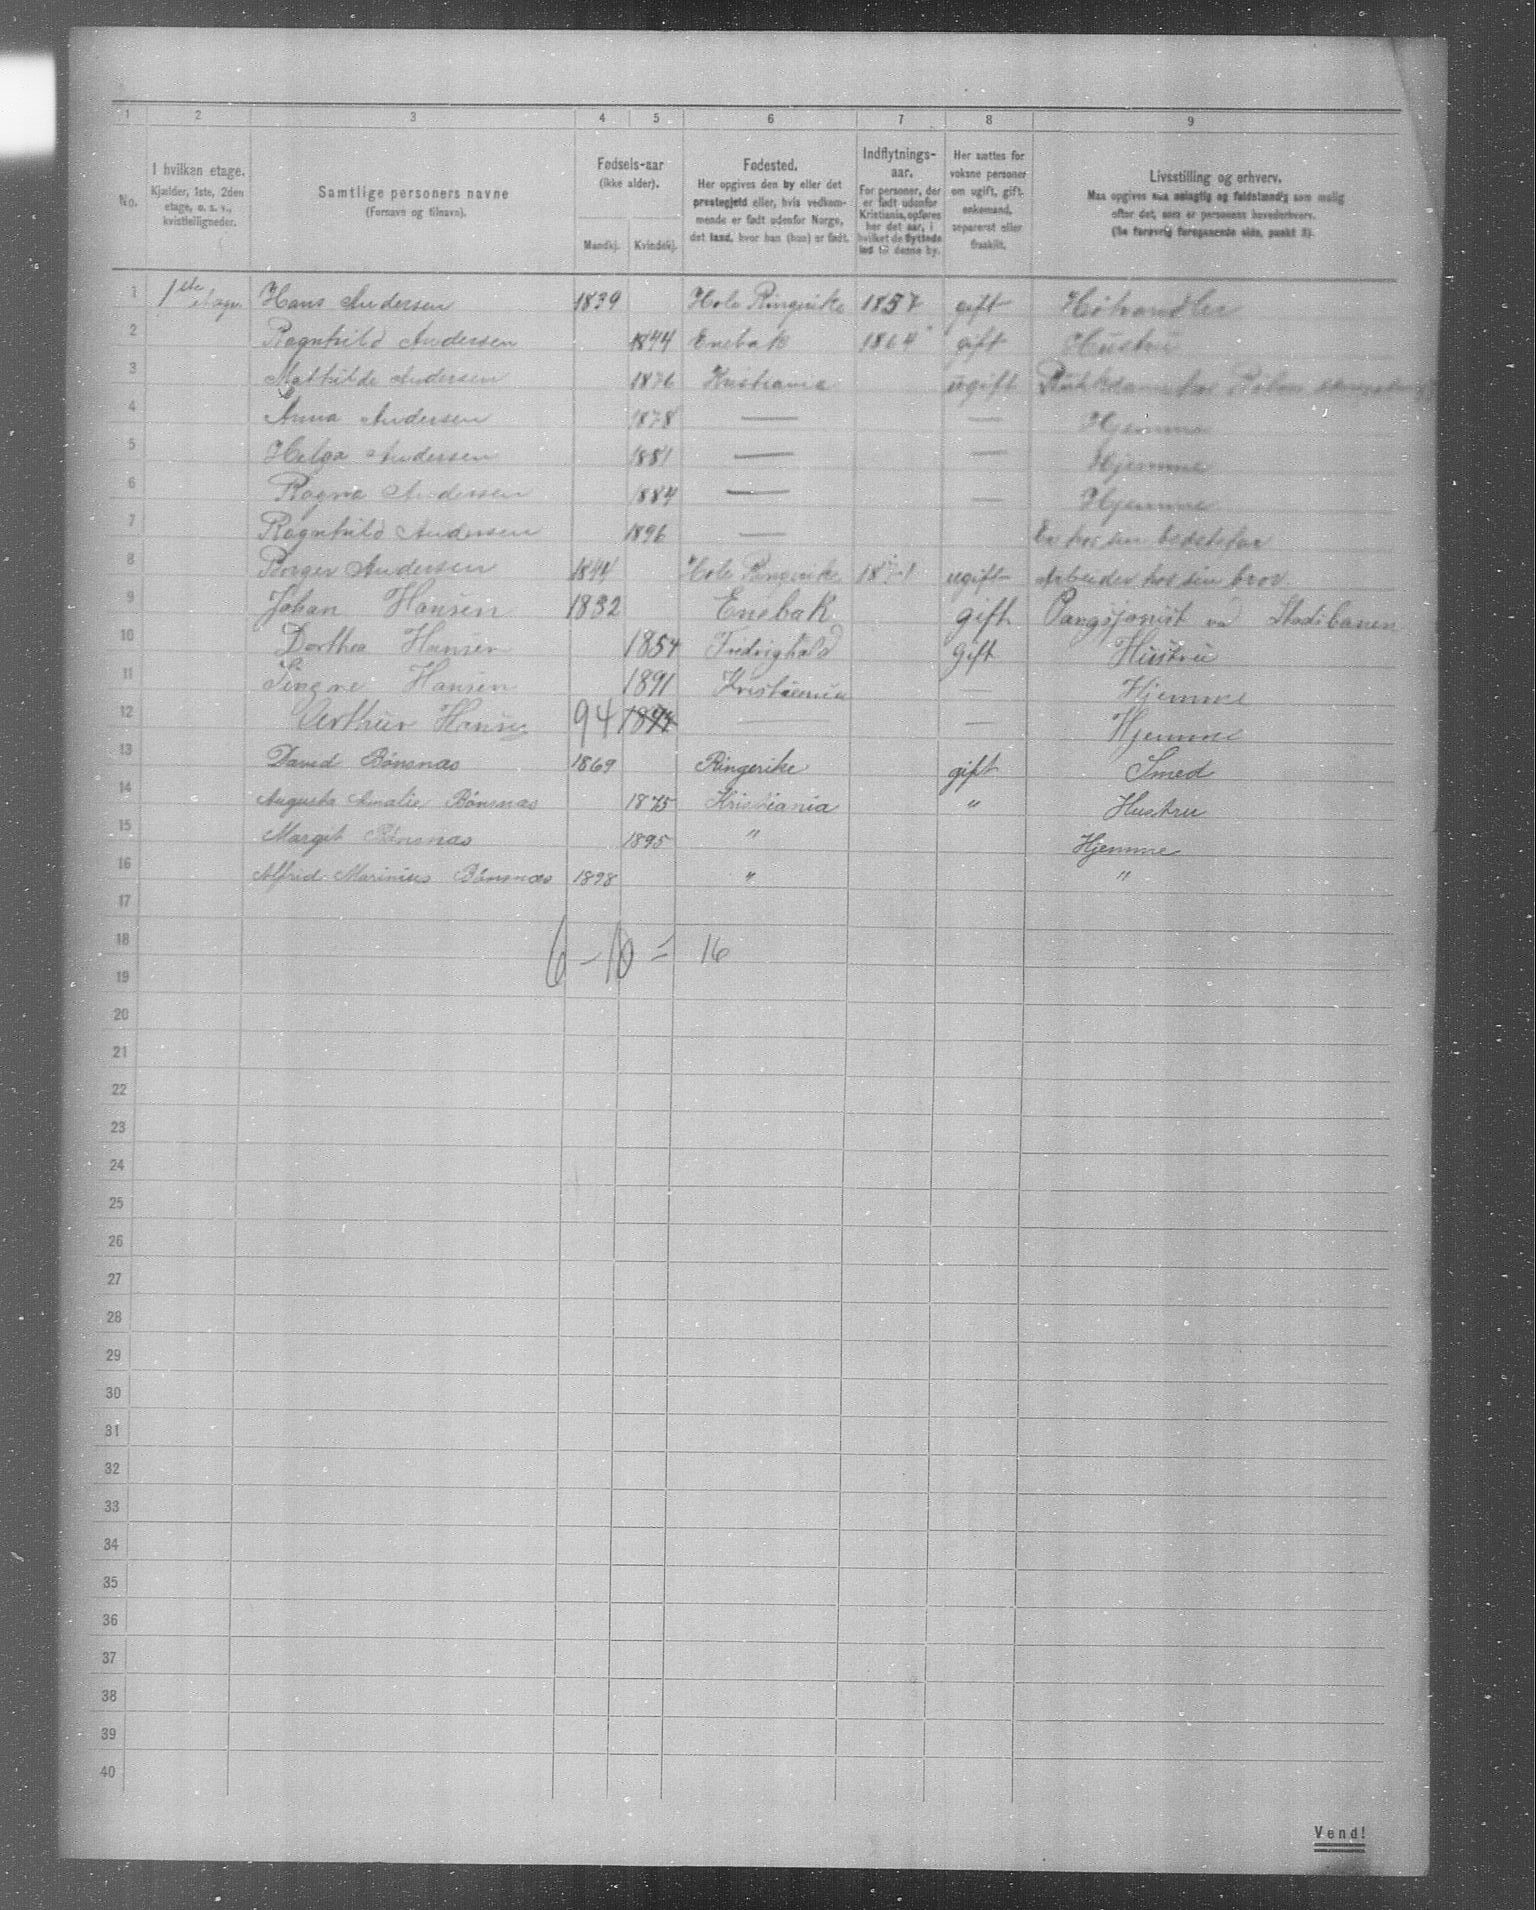 1 2 3 4 5 6 7 8 9
No.
I hvilken etage.
Kjælder, 1ste, 2den
etage, o. s. v.,
kvistleiligheder.
Samtlige personers navne
(Fornavn og tilnavn).
Fødsels-aar
(ikke alder).
Mandkj. Kvindekj.
Fødested.
Her opgives den by eller det
prestegjeld eller, hvis vedkom-
mende er født udenfor Norge,
det land, hvor han (hun) er født.
Indflytnings-
aar.
For personer, der
er født udenfor
Kristiania, opføres
her det aar, i
hvilket de flyttede
ind til denne by.
Her sættes for
voksne personer
om ugift, gift,
enkemand,
separeret eller
fraskilt.
Livsstilling og erhverv.
Maa opgives saa nøiagtig og fuldstændig som mulig
efter det, som er personens hovederhverv.
(Se forøvrig foregaaende side, punkt 3).
1 1ste etage Hans Andersen 1839 Hole Ringerike 1857 gift Høhandler
2 Ragnhild Andersen 1844 Enebak 1864 gift Hustru
3 Mathilde Andersen 1876 Kristiania ugift
4 Anna Andersen 1878 — — Hjemme
5 Helga Andersen 1881 — — Hjemme
6 Ragna Andersen 1884 — — Hjemme
7 Ragnhild Andersen 1896 — Er hos sin bedstefar
8 Borger Andersen 1844 Hole Ringerike ugift Arbeider hos sin bror
9 Johan Hansen 1832 Enebak gift Pangsjonist Stadsbanen
10 Dorthea Hansen 1854 Fredrighald gift Hustru
11 Singne Hansen 1891 Kristiania — Hjemme
12 Arthur Hansen 94 1894 — — Hjemme
13 David Bønsnæs 1869 Ringerike gift Smed
14 Augusta Amalie Bønsnæs 1875 Kristiania " Hustru
15 Margit Bønsnæs 1895 " Hjemme
16 Alfred Marinius Bønsnæs 1898 " "
17
18 6 – 10 = 16
19
20
21
22
23
24
25
26
27
28
29
30
31
32
33
34
35
36
37
38
39
40
Vend!